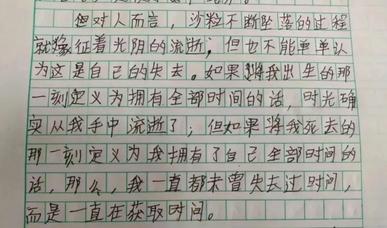 但对人而言，沙粒不断坠落的过程
就像征着光阴的流逝，但也不能单单认
为这是自己的失去。如果将我出生的那
一刻定义为拥有全部时间的话，时光确
实从我手中流逝了，但如果将我死去的
那一刻定义为我拥有了自己全部时间的
话，那么，我一直都未曾失去过时间，
而是一直在获取时间。